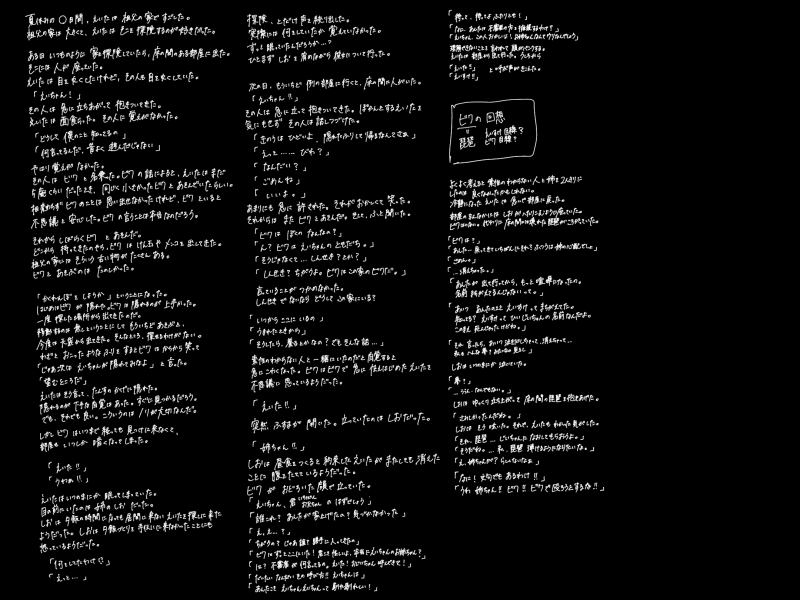 夏休みの〇日間、えいたは祖父の家ですごした。
祖父の家は大きく、えいたはそこを探険するのが好きだった。
ある日いつものように家を探険していたら、床の間のある部屋に出た。
そこには人が座っていた。
えいたは目を丸くしたけれど、その人も目を丸くしていた。
「えいちゃん！」
その人は急に立ちあがって抱きついてきた。
えいたは面食らった。その人に覚えがなかった。
「どうして僕のこと知ってるの」
「何言ってるんだ、昔よく遊んだじゃない」
やはり覚えがなかった。
その人はビワと名乗った。ビワの話によると、えいたはまだ
5歳くらいだったとき、同じく小さかったビワとあそんでいたらしい。
相変わらずビワのことは思い出せなかったけれど、ビワといると
不思議と安心した。ビワの言うことは本当なのだろう。
それからしばらくビワとあそんだ。
どこから持ってきたのやら、ビワはけん玉やメンコを出してきた。
祖父の家にはそういう古い物がたくさんある。
ビワとあそぶのはたのしかった。
「かくれんぼをしようか」ということになった。
はじめはビワが隠れた。ビワは隠れるのが上手かった。
一度探した場所から出てきたのだ。
移動するのは無しということにしてもういちどあそぶと、
今度は天袋から出てきた。そんなという、探せるわけがない。
わざとおこったようなふりをするとビワはからから笑って
「じゃあ次はえいちゃんが隠れてみなよ」と言った。
「望むところだ」
えいたはそう言って、たんすのかげに隠れた。
隠れるのが下手な自覚はあった。すぐに見つかるだろう。
でも、それでも良い。こういうのはノリが大切なんだ。
しかしビワはいつまで経っても見つけに来なくて、
部屋もいつしか暗くなってしまった。
「えいた!!」
「うわぁ!!」
えいたはいつのまにか眠ってしまっていた。
目の前にいたのは姉のしおだった。
しおは夕飯の時間になっても居間に来ないえいたを探しに来た
ようだった。しおは夕飯づくりを手伝いに来なかったことにも
怒っているようだった。
「何をしてたわけ!?」
「えっと…」
探険、とだけ声を絞り出した。
実際には何をしていたか覚えていなかった。
ずっと眠っていたんだろうか…?
ひとまずしおを廊のながら彼女について行った。
次の日、もういちど例の部屋に行くと、床の間に人がいた。
「えいちゃん!!」
その人は急に立って抱きついてきた。ぽかんとするえいたを
気にもせずその人は話しつづけた。
「きのうはひどいよ、隠れたふりして帰るなんてさぁ」
「えっと……びわ？」
「なんだい？」
「ごめんね」
「いいよ。」
あまりにも急に許された。それがおかしくて笑った。
それからはまたビワとあそんだ。そして、ふと聞いた。
「ビワはぼくのなんなの？」
「ん？ビワはえいちゃんのともだちさ。」
「そうじゃなくて…しんせき？とか？」
「しんせき？ちがうよ。ビワはこの家のビワだ。」
言っていることがつかめなかった。
しんせきでないならどうしてこの家にいる？
「いつからここにいるの」
「うまれたときから」
「そうしたら、暮るとかなの？でもそんな話…」
素性のわからない人と一緒にいたのだと自覚すると
急にこわくなった。ビワはビワで急に怯えはじめたえいたを
不思議に思っているようだった。
「えいた!!」
突然、ふすまが開いた。立っていたのはしおだった。
「姉ちゃん!!」
しおは昼食をつくると約束したえいたがまたしても消えた
ことに腹をたてているようだった。
ビワがおどろいた顔で立っていた。
「えいちゃん、君いちばん おにちゃんのはずでしょう」
「誰これ？あんたが家上げたの？気づかなかった」
「え、え…？」
「ちがうの？じゃあ誰？勝手に入ってきたの」
「ビワはずっとここにいた！君こそ怪しいよ、本当にえいちゃんのお姉ちゃん？」
「は？不審者が何言ってるの。えいた！おじいちゃん呼んできて！」
「だいたいなんだいその呼び方!! えいちゃんは」
「あんたこそえいちゃんえいちゃんって馴れ馴れしい！」
「待って、待ってよふたりとも！」
「なに、あんたは不審者の方を擁護するわけ？」
「えいちゃん、この人おかしい！お姉ちゃんなんてウソなんでしょう」
理解できないことを言われて頭がぐらぐらする。
えいたは部屋から出て行った。うしろから
「えいた!」　と呼ぶ声がきこえた。
「えいすけ!!」
ビワの回想
=
琵琶
えいすけ目線？
ビワ目線？
よくよく考えると素性のわからない人と姉を2人きりに
したのは良くなかったかもしれない。
冷静になったえいたは急いで部屋に戻った。
部屋のまんなかにはしおがへたりこむように座っていた。
ビワはいない。代わりに床の間には壊れた琵琶がころがっていた。
「ビワは？」
「あんた…戻ってきていちばんにそれ？ふつうは姉の心配でしょ」
「ごめん。」
「…消えちゃった。」
「あんたが出て行ってから、もっと喧嘩になったの。
名前まちがえてるんじゃないって。」
「あいつ、あんたのことえいすけってまちがえてた。
知ってる？えいすけってひいじいちゃんの名前なんだよ。
このまえ死んじゃったけどね。」
「それ言ったら、あいつ泣きだしちゃって、消えちゃって…
私もへんな夢？みたいなの見て」
しおはしずかに泣いていた。
「夢？」
「…ううん、なんでもない。」
しおはゆっくり立ち上がって、床の間の琵琶を抱きあげた。
「さみしかったんだわ。」
しおはもう呟いた。それで、えいたもわかった気がした。
「それ、琵琶…じいちゃんになおしてもらおうよ。」
「そうだね。…私、琵琶弾けるようになりたいな。」
「え、姉ちゃんが？らしくないなぁ」
「なに！文句でもあるわけ!!」
「うわ 姉ちゃん!! ビワ!! ビワで殴ろうとするな!!」